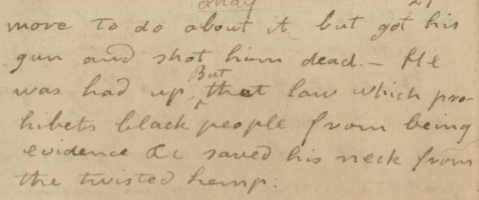 more to do about it but got his
gun and shot him dead. — He
was had up, But that law which pro-
hibets black people from being
evidence &c saved his neck from
the twisted hemp.